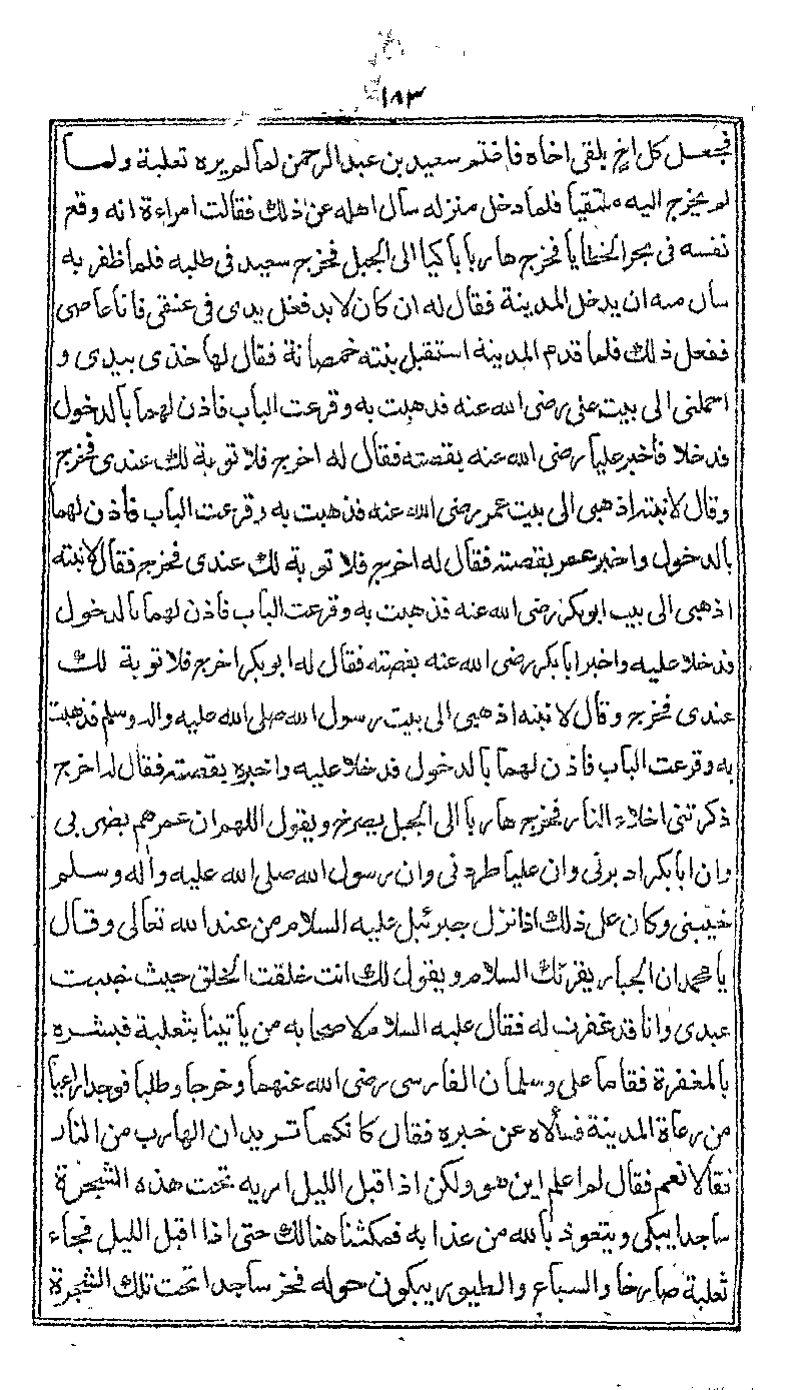 ١٨٣
فجعل كل اخ يلقى اخاه فاغتم سعيد بن عبد الرحمن لما لم يره ثعلبة ولما
لم يخرج اليه ملتقيا فلما دخل منزله سأل اهله عن ذلك فقالت امراءة انه وقع
نفسه فى بحر الخطايا فخرج هاربا باكيا الى الجبل فخرج سعيد فى طلبه فلما ظفر به
سأل منه ان يدخل المدينة فقال له ان كان لا بد فغل يدى فى عنقى فانا عاصى
ففعل ذلك فلما قدم المدينة استقبل بنته خمصانة فقال لها خذى بيدى و
احملنى الى بيت على رضى الله عنه فذهبت به وقرعت الباب فاذن لهما بالدخول
فدخلا فاخبر عليا رضى الله عنه بقصته فقال له اخرج فلا توبة لك عندى فخرج
وقال لابنته اذهبى الى بيت عمر رضى الله عنه فذهبت به وقرعت الباب فاذن لهما
بالدخول واخبر عمر بقصته فقال له اخرج فلا توبة لك عندى فخرج فقال لابنته
اذهبى الى بيت ابوبكر رضى الله عنه فذهبت به وقرعت الباب فاذن لهما بالدخول
فدخلا عليه واخبر ابابكر رضى الله عنه بقصته فقال له ابوبكر اخرج فلا توبة لك
عندى فخرج وقال لابنته اذهبى الى بيت رسول الله صلى الله عليه واله وسلم فذهبت
به وقرعت الباب فاذن لهما بالدخول فدخلا عليه واخبره بقصته فقال له اخرج
ذكرتنى اخلاء النار فخرج هاربا الى الجبل يصرخ ويقول اللهم ان عمر هم بضربى
وان ابابكر ادبرنى وان عليا طردنى وان رسول الله صلى الله عليه واله وسلم
خيبنى وكان على ذلك اذا نزل جبرئيل عليه السلام من عند الله تعالى وقال
يا محمد ان الجبار يقرئك السلام ويقول لك انت خلقت الخلق حيث خيبت
عبدى وانا قد غفرت له فقال عليه السلام لاصحابه من يأتينا بثعلبة فبشره
بالمغفرة فقاما على وسلمان الفارسى رضى الله عنهما وخرجا وطلبا فوجدا راعيا
من رعاة المدينة فسألاه عن خبره فقال كانكما تريدان الهارب من النار
نقالا نعم فقال لم اعلم اين هو ولكن اذا قبل الليل اريه تحت هذه الشجرة
ساجدا يبكى ويتعوذ بالله من عذابه فمكثنا هنالك حتى اذا اقبل الليل فجاء
ثعلبة صارخا والسباع والطيور يبكون حوله فخر ساجدا تحت تلك الشجرة